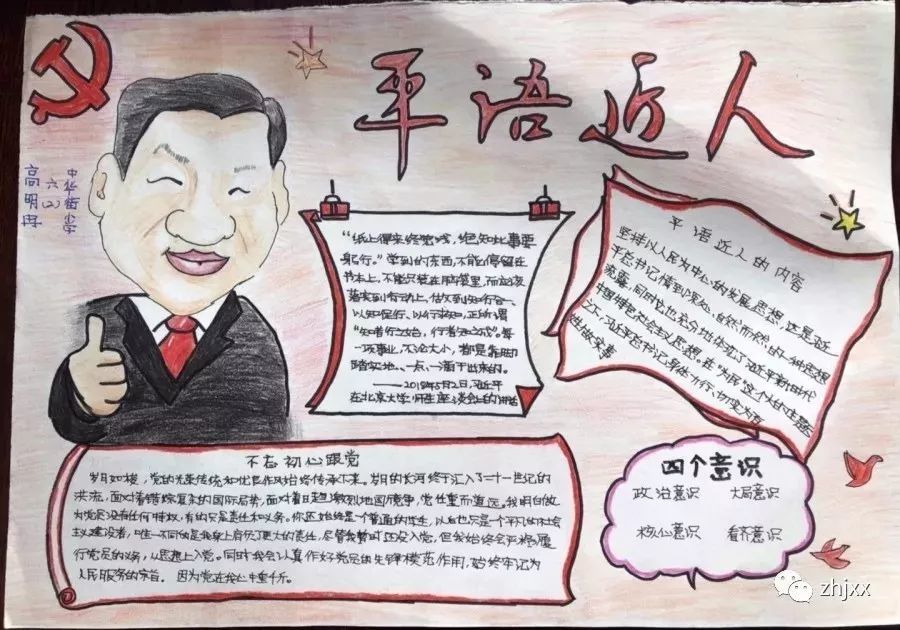 平语近人
中华街小学
六(2)
高明冉
“纸上得来终觉浅，绝知此事要
躬行。”学到的东西，不能停留在
书本上，不能只装在脑袋里，而应该
落实到行动上，做到知行合一、
以知促行、以行求知，正所谓
“知者行之始，行者知之成”。每
一项事业，不论大小，都是靠脚
踏实地、一点一滴干出来的。
——2018年5月2日，习近平
在北京大学师生座谈会上的讲话
平语近人的内容
坚持以人民为中心的发展思想，这是近
平总书记情到深处，自然而然的一种思想
流露，同时也充分地体现了习近平新时代
中国特色社会主义思想。在“为民”这个大的主题
之下，习近平总书记身体力行，切实为百
姓做实事
不忘初心跟党
岁月如梭，党的光荣传统和优良作风始终传承下来。岁月的长河终于汇入了二十一世纪的
洪流，面对着错综复杂的国际局势，面对着日趋激烈地国竞争，党任重而道远。我明白做
为党员没有任何特权，有的只是责任和义务。你还始终是一个普通的学生，以后也只是个平凡的社会
主义建设者，唯一不同的是我身上肩负了更大的责任，尽管我暂时还没入党，但我始终会严格履
行党员的义务，从思想上入党。同时我会认真作好党员的先锋模范作用，始终牢记为
人民服务的宗旨。因为党在我心中重千斤。
四个意识
政治意识 大局意识
核心意识 看齐意识
zhjxx